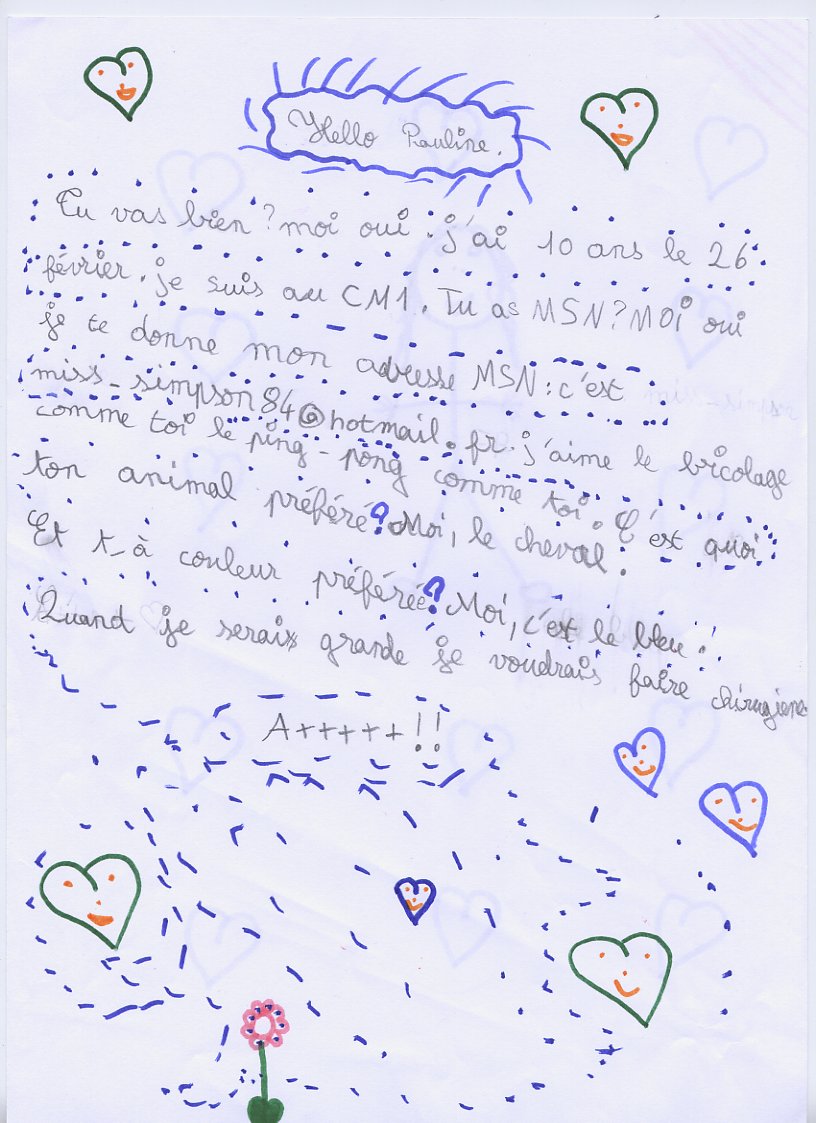 Hello Pauline.
Tu vas bien ? moi oui . j'ai 10 ans le 26
février . je suis au CM1 . Tu as MSN ? MOI oui
je te donne mon adresse MSN : c'est
miss_simpson84@hotmail.fr . j'aime le bricolage
comme toi le ping-pong comme toi . C'est quoi
ton animal préféré ? Moi, le cheval .
Et t-à couleur préférée ? Moi, c'est le bleu .
Quand je serais grande je voudrais faire chirugiene
A+++++!!